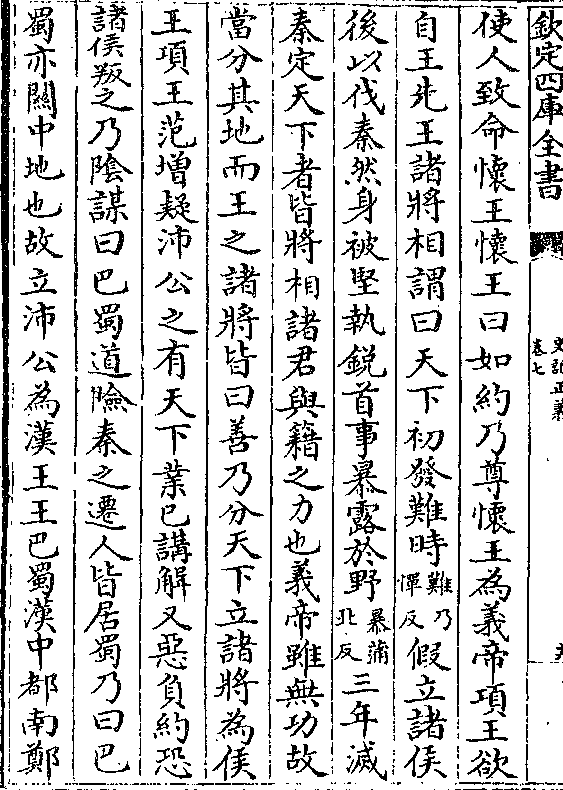 欽定四庫全書
史記正義
卷七
使人致命懷王懷王曰如約乃尊懷王為義帝項王欲
自王先王諸將相謂曰天下初發難時難乃憚反假立諸侯
後以伐秦然身被堅執銳首事暴露於野暴蒲北反三年滅
秦定天下者皆將相諸君與籍之力也義帝雖無功故
當分其地而王之諸將皆曰善乃分天下立諸將為侯
王項王范增疑沛公之有天下業已講解又惡負約恐
諸侯叛之乃陰謀曰巴蜀道險秦之遷人皆居蜀乃曰巴
蜀亦關中地也故立沛公為漢王王巴蜀漢中都南鄭